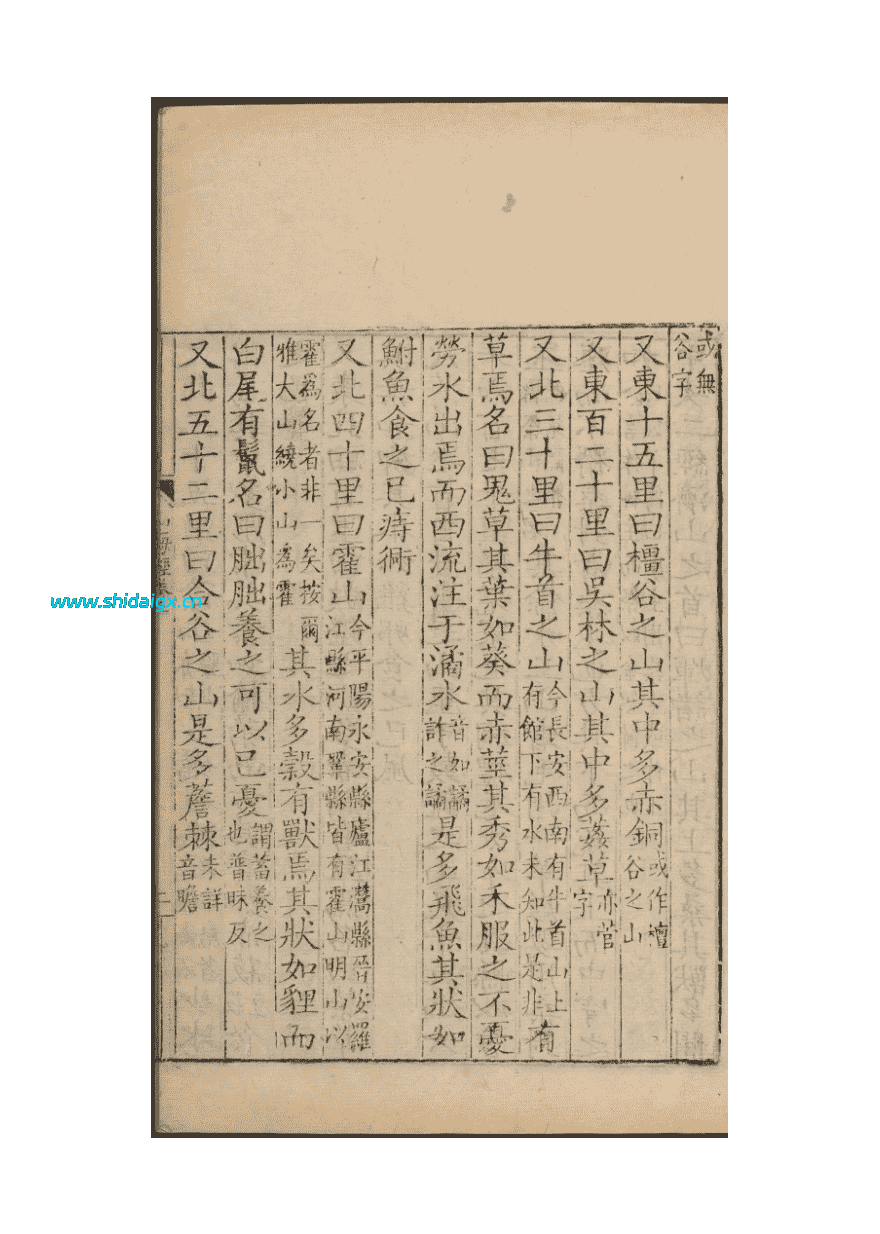 或無
谷字
又東十五里曰橿谷之山其中多赤銅或作檀谷之山
又東百二十里曰吳林之山其中多葌草亦菅字
又北三十里曰牛首之山今長安西南有牛首山上有館下有水未知此是非有
草焉名曰鬼草其葉如葵而赤莖其秀如禾服之不憂
勞水出焉而西流注于潏水音如譎詐之譎是多飛魚其狀如
鮒魚食之已痔衕
又北四十里曰霍山今平陽永安縣廬江灊縣晉安羅江縣河南鞏縣皆有霍山明山以
霍爲名者非一矣按爾雅大山繞小山為霍其水多榖有獸焉其狀如貍而
白尾有鬣名曰朏朏養之可以已憂謂蓄養之也普昧反
又北五十二里曰合谷之山是多薝棘未詳音瞻
山海經
www.shidaigx.cn